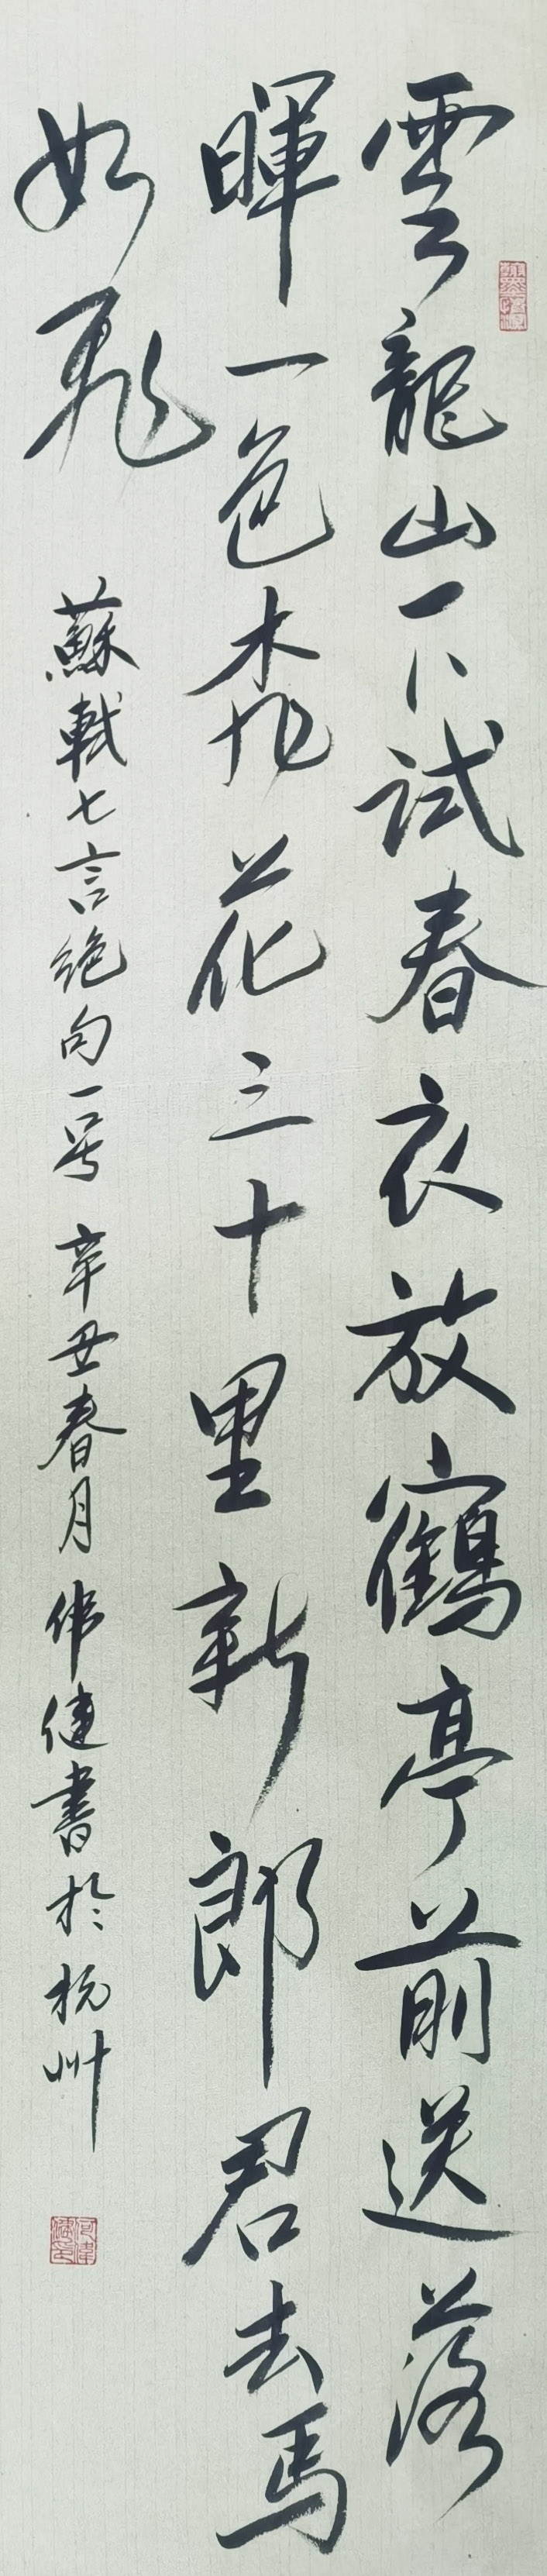 雲龍山下試春衣放鶴亭前送落
暉一色杏花三十里新郎君去馬
如飛
蘇軾七言絶句一首 辛丑春月 偉健書於杭州
何偉健印